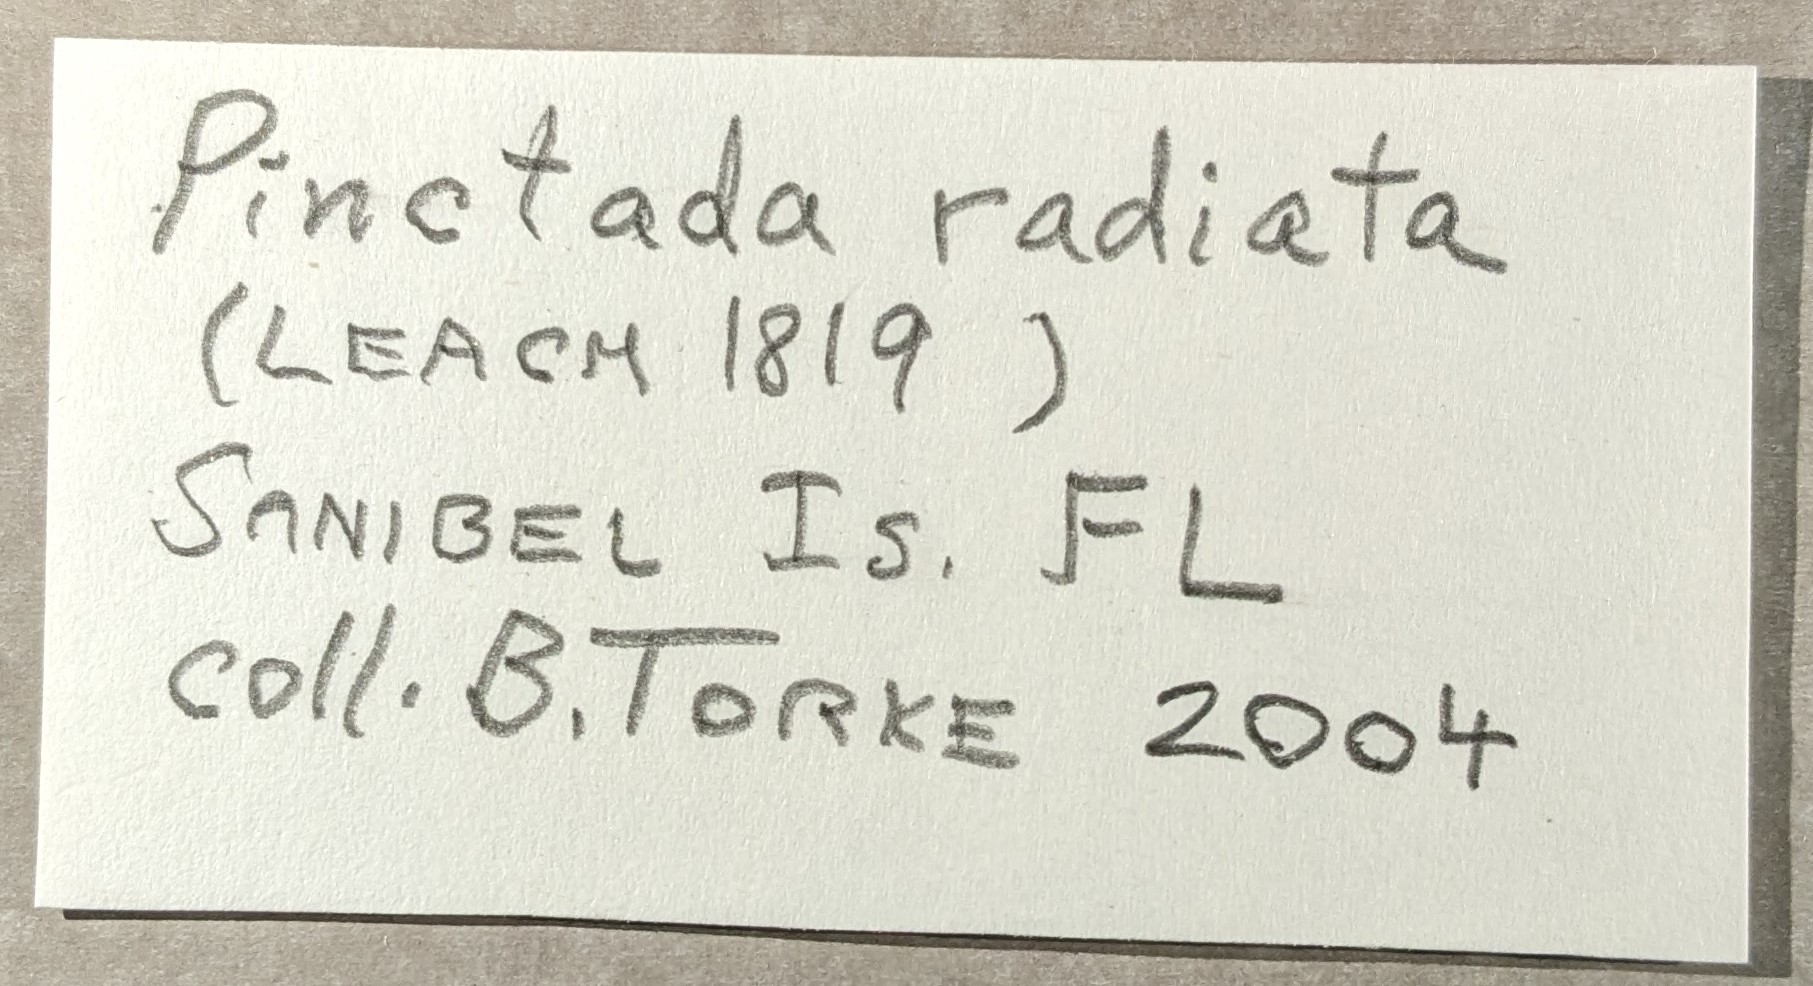 Pinctada radiata
(LEACH 1819 )
SANIBEL Is. FL
coll. B. TORKE 2004